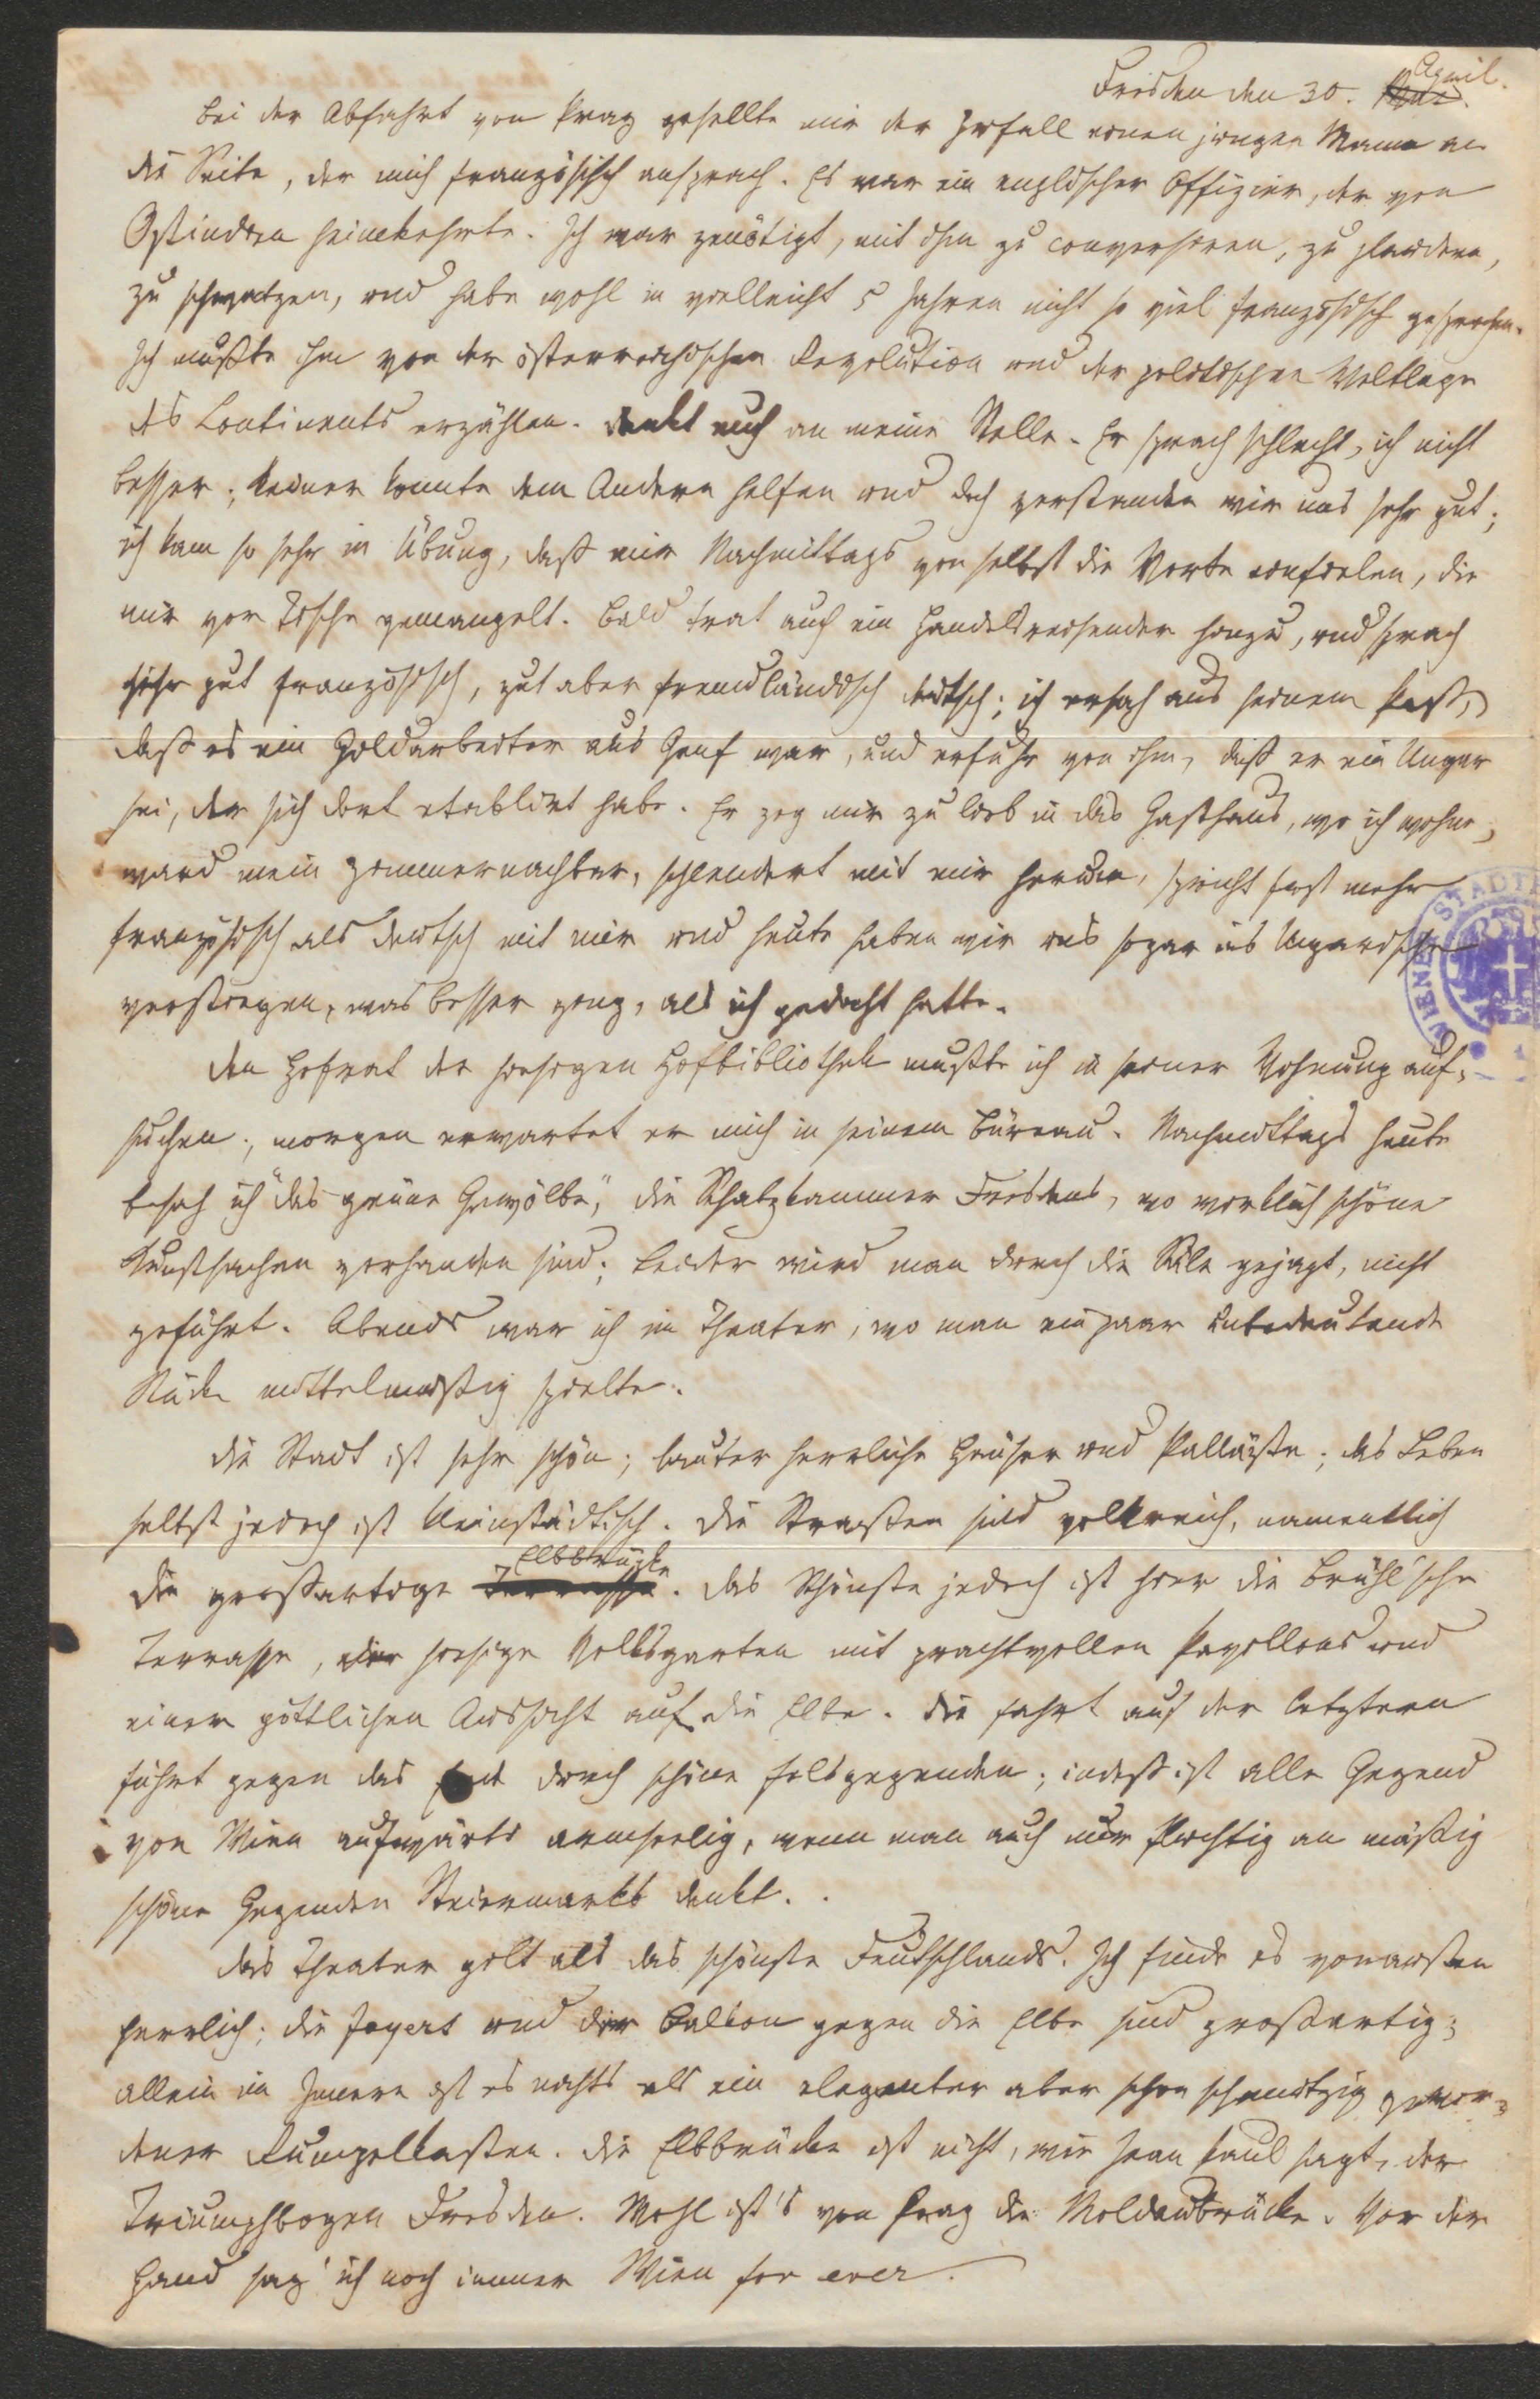 Dresden den 30. April.
Bei der Abfahrt von Prag gesellte mir der Zufall einen jungen Mann an
die Seite, der mich französisch ansprach. Es war ein englischer Offizier, der von
Ostindien heimkehrte. Ich war genötigt, mit ihm zu conversiren, zu plaudern,
zu schwatzen, und habe wohl in vielleicht 5 Jahren nicht so viel französisch gesprochen.
Ich mußte ihm von der österreichischen Revolution und der politischen Weltlage
des Continents erzählen. Denkt euch an meine Stelle. Er sprach schlecht, ich nicht
besser; keiner konnte dem Andern helfen und doch verstanden wir uns sehr gut;
ich kam so sehr in Übung, daß mir Nachmittags von selbst die Worte einfielen, die
mir vor Tische gemangelt. Bald trat auch ein Handelsreisender hinzu, und sprach
sehr gut französisch, gut aber fremdländisch deutsch; ich ersah aus seinem Paß,
daß es ein Goldarbeiter aus Genf war, und erfuhr von ihm, daß er ein Ungar
sei, der sich dort etablirt habe. Er zog mir zu lieb in das Gasthaus, wo ich wohne,
ward mein Zimmernachbar, schlendert mit mir herum, spricht fast mehr
französisch als deutsch mit mir und heute haben wir uns sogar ins Ungarische
verstiegen, was besser ging, als ich gedacht hatte.
Den Hofrat der hiesigen Hofbibliothek mußte ich in seiner Wohnung auf-
suchen; morgen erwartet er mich in seinem Büreau. Nachmittags heute
besah ich "das grüne Gewölbe", die Schatzkammer Dresdens, wo wirklich schöne
Kunstsachen vorhanden sind; leider wird man durch die Säle gejagt, nicht
geführt. Abends war ich im Theater, wo man ein paar unbedeutende
Stücke mittelmäßig spielte.
Die Stadt ist sehr schön; lauter herrliche Häuser und Palläste; das Leben
selbst jedoch ist kleinstädtisch. Die Strassen sind volkreich, namentlich
die großartige Terrasse Elbbrücke. Das Schönste jedoch ist hier die Brühl'sche
Terrasse, der hiesige Volksgarten mit prachtvollen Pavillons und
einer göttlichen Aussicht auf die Elbe. Die Fahrt auf der letztern
führt gegen das End durch schöne Felsgegenden; indeß ist alle Gegend
von Wien aufwärts armseelig, wenn man auch nur flüchtig an mäßig
schöne Gegenden Steiermarks denkt.
Das Theater gilt als das schönste Deutschlands. Ich finde es von außen
herrlich; die Foyers und der Balkon gegen die Elbe sind großartig;
allein im Innern ist es nichts als ein eleganter aber schon schmutzig gewor-
dener Rumpelkasten. Die Elbbrücke ist nicht, wie Jean Paul sagt, der
Triumphbogen Dresden. Wohl ist's von Prag die Moldaubrücke. Vor der
Hand sag' ich noch immer Wien for ever.
WIENER STADT